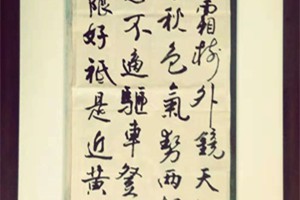 霜樹外鏡天
秋色氣勢兩
不適驅車登
限好祗是近黃